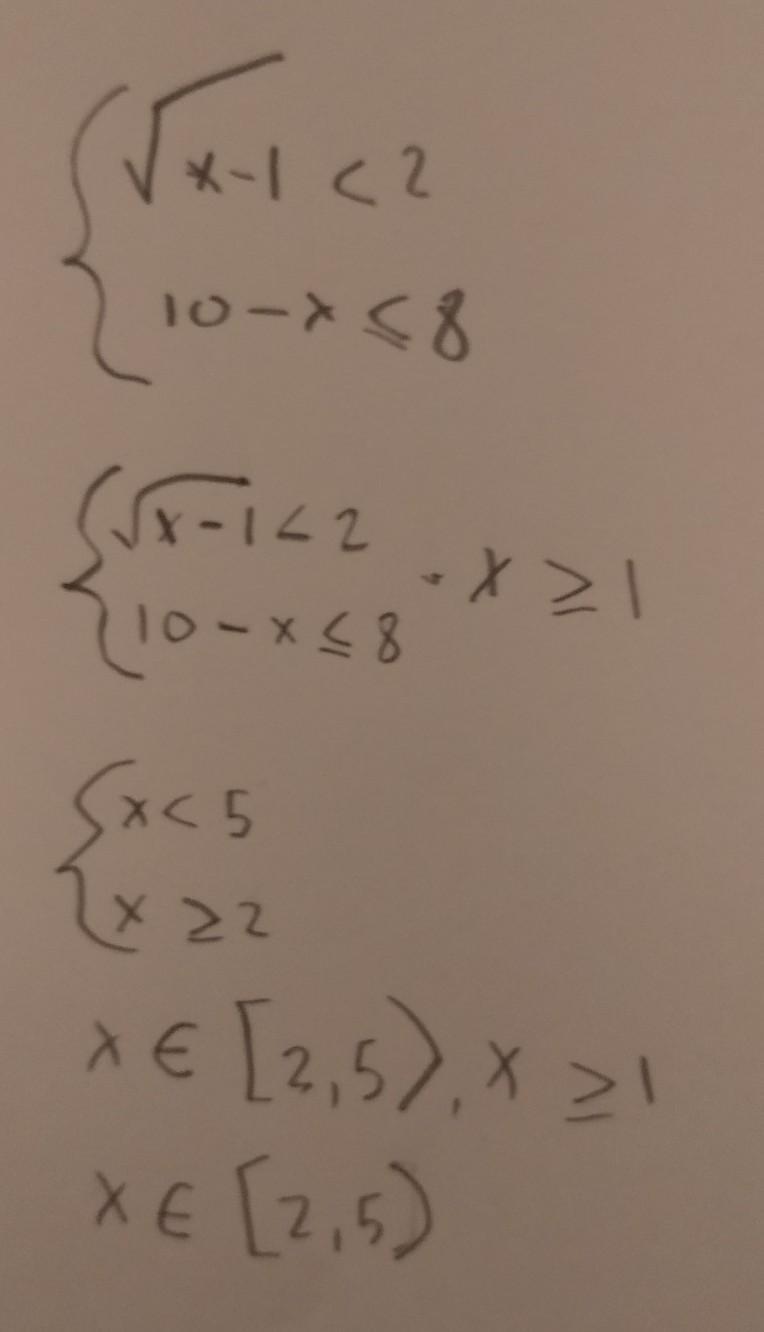 √x-1 < 2
10-x ≤ 8
√x-1 < 2
10-x ≤ 8 . x ≥ 1
x < 5
x ≥ 2
x ∈ [2,5), x ≥ 1
x ∈ [2,5)